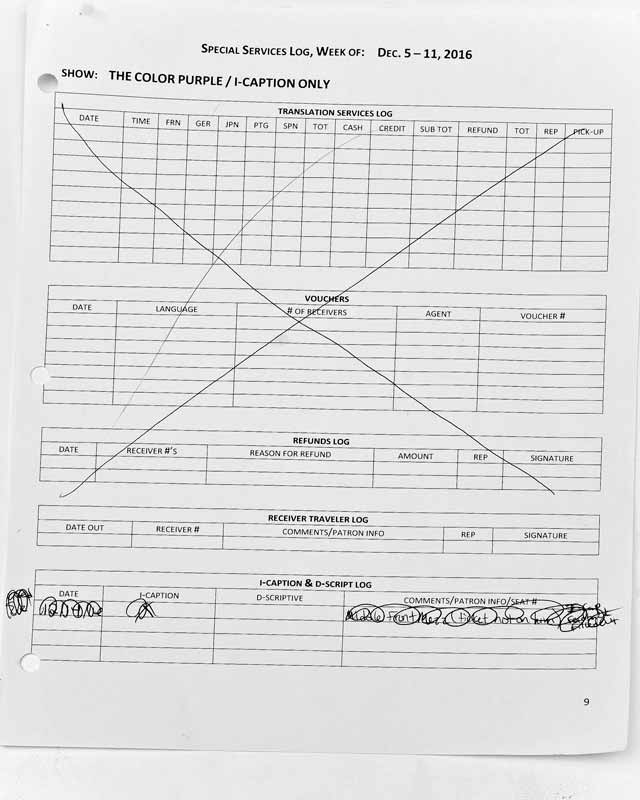 SPECIAL SERVICES LOG, WEEK OF: DEC. 5 – 11, 2016
SHOW: THE COLOR PURPLE / I-CAPTION ONLY
TRANSLATION SERVICES LOG
DATE TIME FRN GER JPN PTG SPN TOT CASH CREDIT SUB TOT REFUND TOT REP PICK-UP
VOUCHERS
DATE LANGUAGE # OF RECEIVERS AGENT VOUCHER #
REFUNDS LOG
DATE RECEIVER #'S REASON FOR REFUND AMOUNT REP SIGNATURE
RECEIVER TRAVELER LOG
DATE OUT RECEIVER # COMMENTS/PATRON INFO REP SIGNATURE
I-CAPTION & D-SCRIPT LOG
DATE I-CAPTION D-SCRIPTIVE COMMENTS/PATRON INFO/SEAT #
Middle Front Mezz ticket not on
9